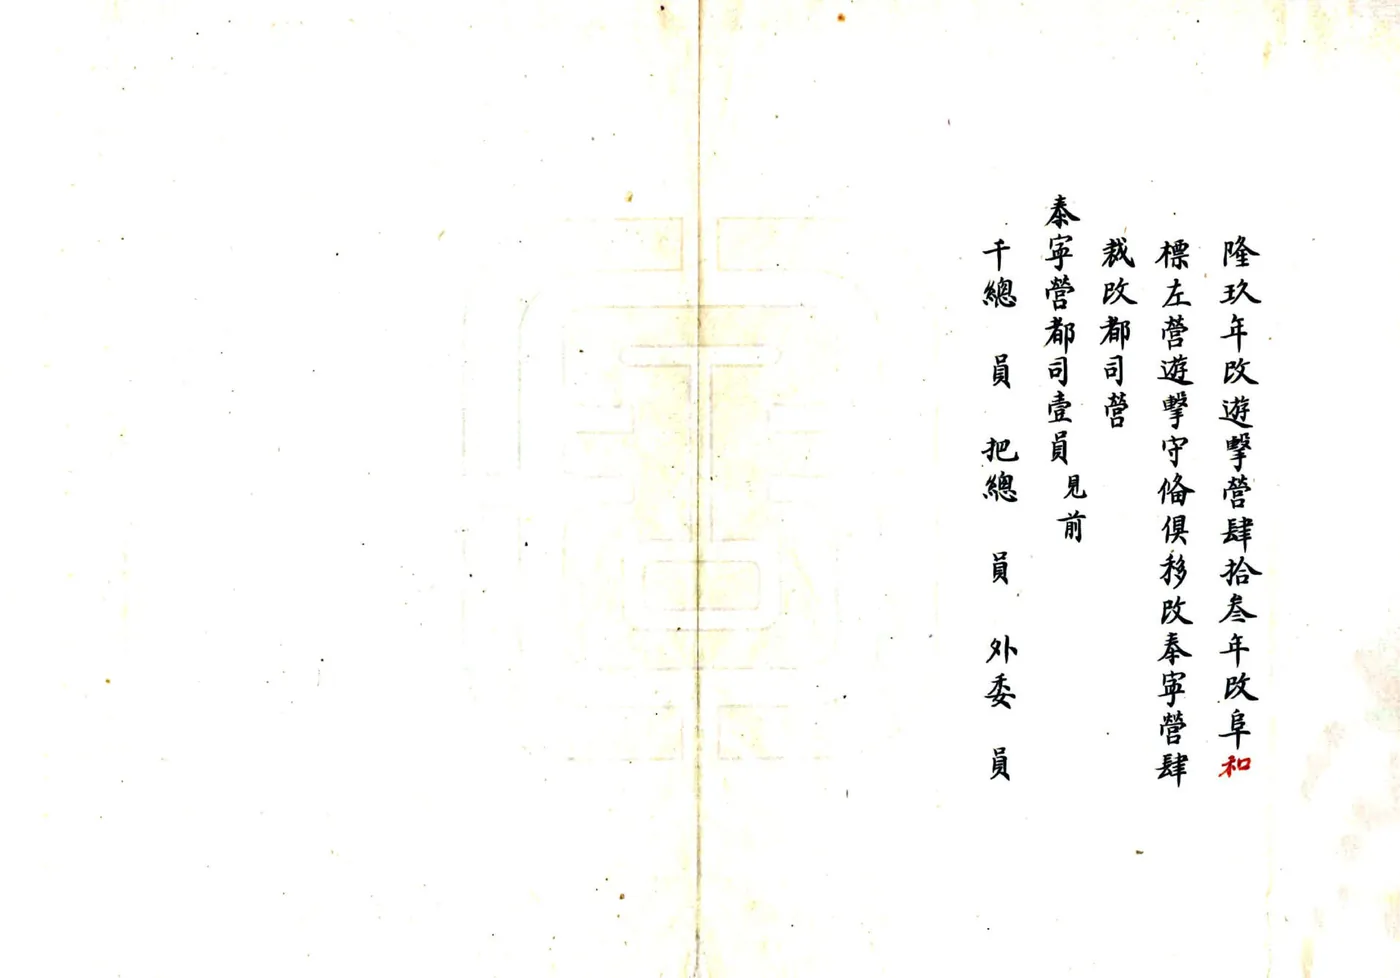 隆玖年改遊擊營肆拾叁年改阜和
標左營遊擊守俻俱移改泰寧營肆
裁改都司營
泰寧營都司壹員見前
千總　員　把總　員　外委　員